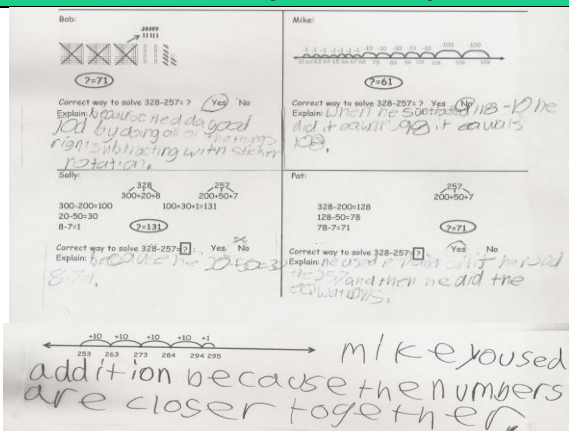 Bob:
?=71
Correct way to solve 328-257= ? Yes No
Explain: because he did a good
job by doing all of the things
right subtracting with sticker
notation.
Mike:
-1 -1 -1 -1 -1 -1 -1 -10 -10 -10 -10 -10 -100 -100
?=61
Correct way to solve 328-257= ? Yes No
Explain: When he subtracted 118-10 he
did it equals 98 it equals
108.
Sally:
328
300+20+8
257
200+50+7
300-200=100
100+30+1=131
20-50=30
8-7=1
?=131
Correct way to solve 328-257= ? : Yes No
Explain: because he 20-50=30
8-7=1.
Pat:
257
200+50+7
328-200=128
128-50=78
78-7=71
?=71
Correct way to solve 328-257= ? Yes No
Explain: he used
the 257 and then he did the
equations.
+10 +10 +10 +10 +1
253 263 273 284 294 295
mike yoused
addition because the numbers
are closer together.